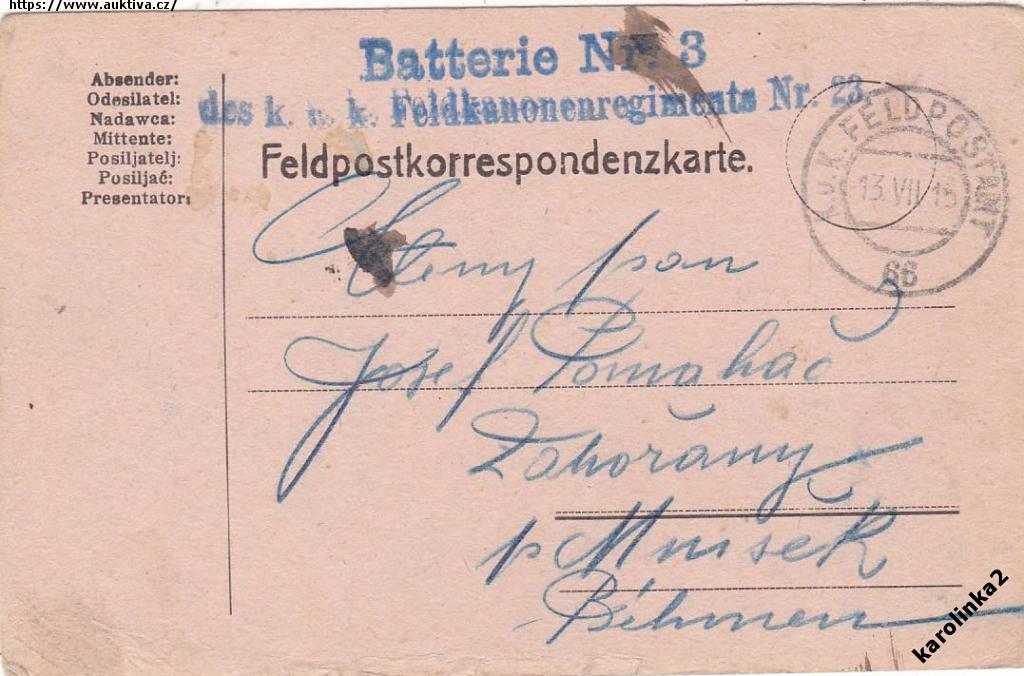 https://www.auktiva.cz/
Batterie Nr. 3
des k. u. k. Feldkanonenregiments Nr. 23
Absender:
Odesílatel:
Nadawca:
Mittente:
Posiljatelj:
Posiljač:
Presentator:
Feldpostkorrespondenzkarte.
K.U.K. FELDPOSTAMT
13.VII.15
66
Ctěný pan
Josef Pomahač
Zahořany
p Mníšek
Böhmen
karolinka2